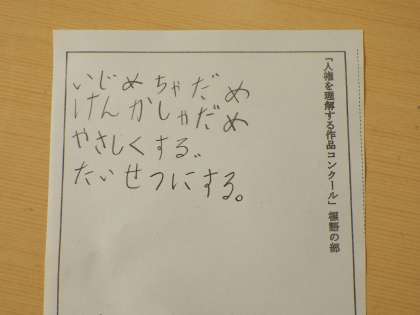 「人権を理解する作品コンクール」 標語の部
いじめちゃだめ
けんかしゃだめ
やさしくする。
たいせつにする。